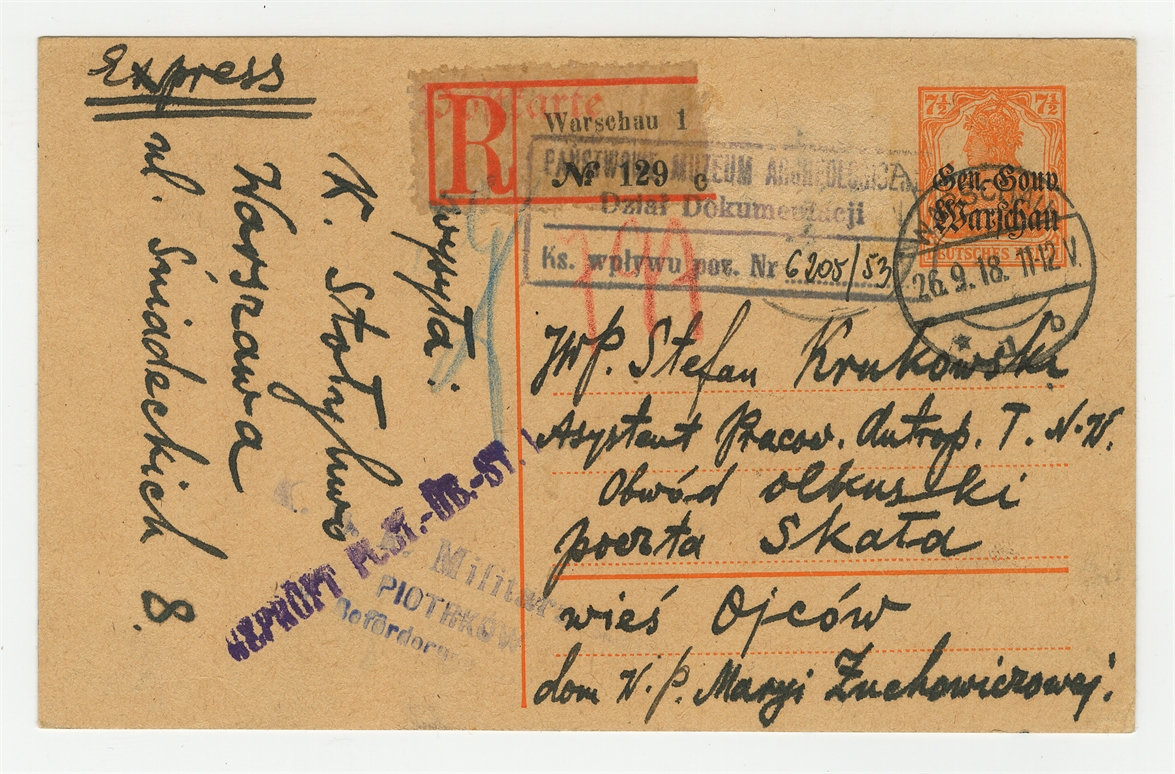 Express
wysyła:
K. Stołyhwo
Warszawa
ul. Śniadeckich 8.
R
Warschau 1
№ 129 c
PAŃSTWOWE MUZEUM ARCHEOLOGICZN
Dział Dokumentacji
Ks. wpływu poz. Nr 6205/53
7½ 7½
Gen.-Gouv.
Warschau
DEUTSCHES
WARSCHAU
26.9.18. 11-12 V.
* 1 c
JWP. Stefan Krukowski
Asystent Pracow. Antrop. T. N. W.
Obwód olkuski
poczta Skała
wieś Ojców
dom W. P. Maryi Żuchowiczowej.
GEPRÜFT P.ST.-ÜB.-ST.
Militär
PIOTRKÓW